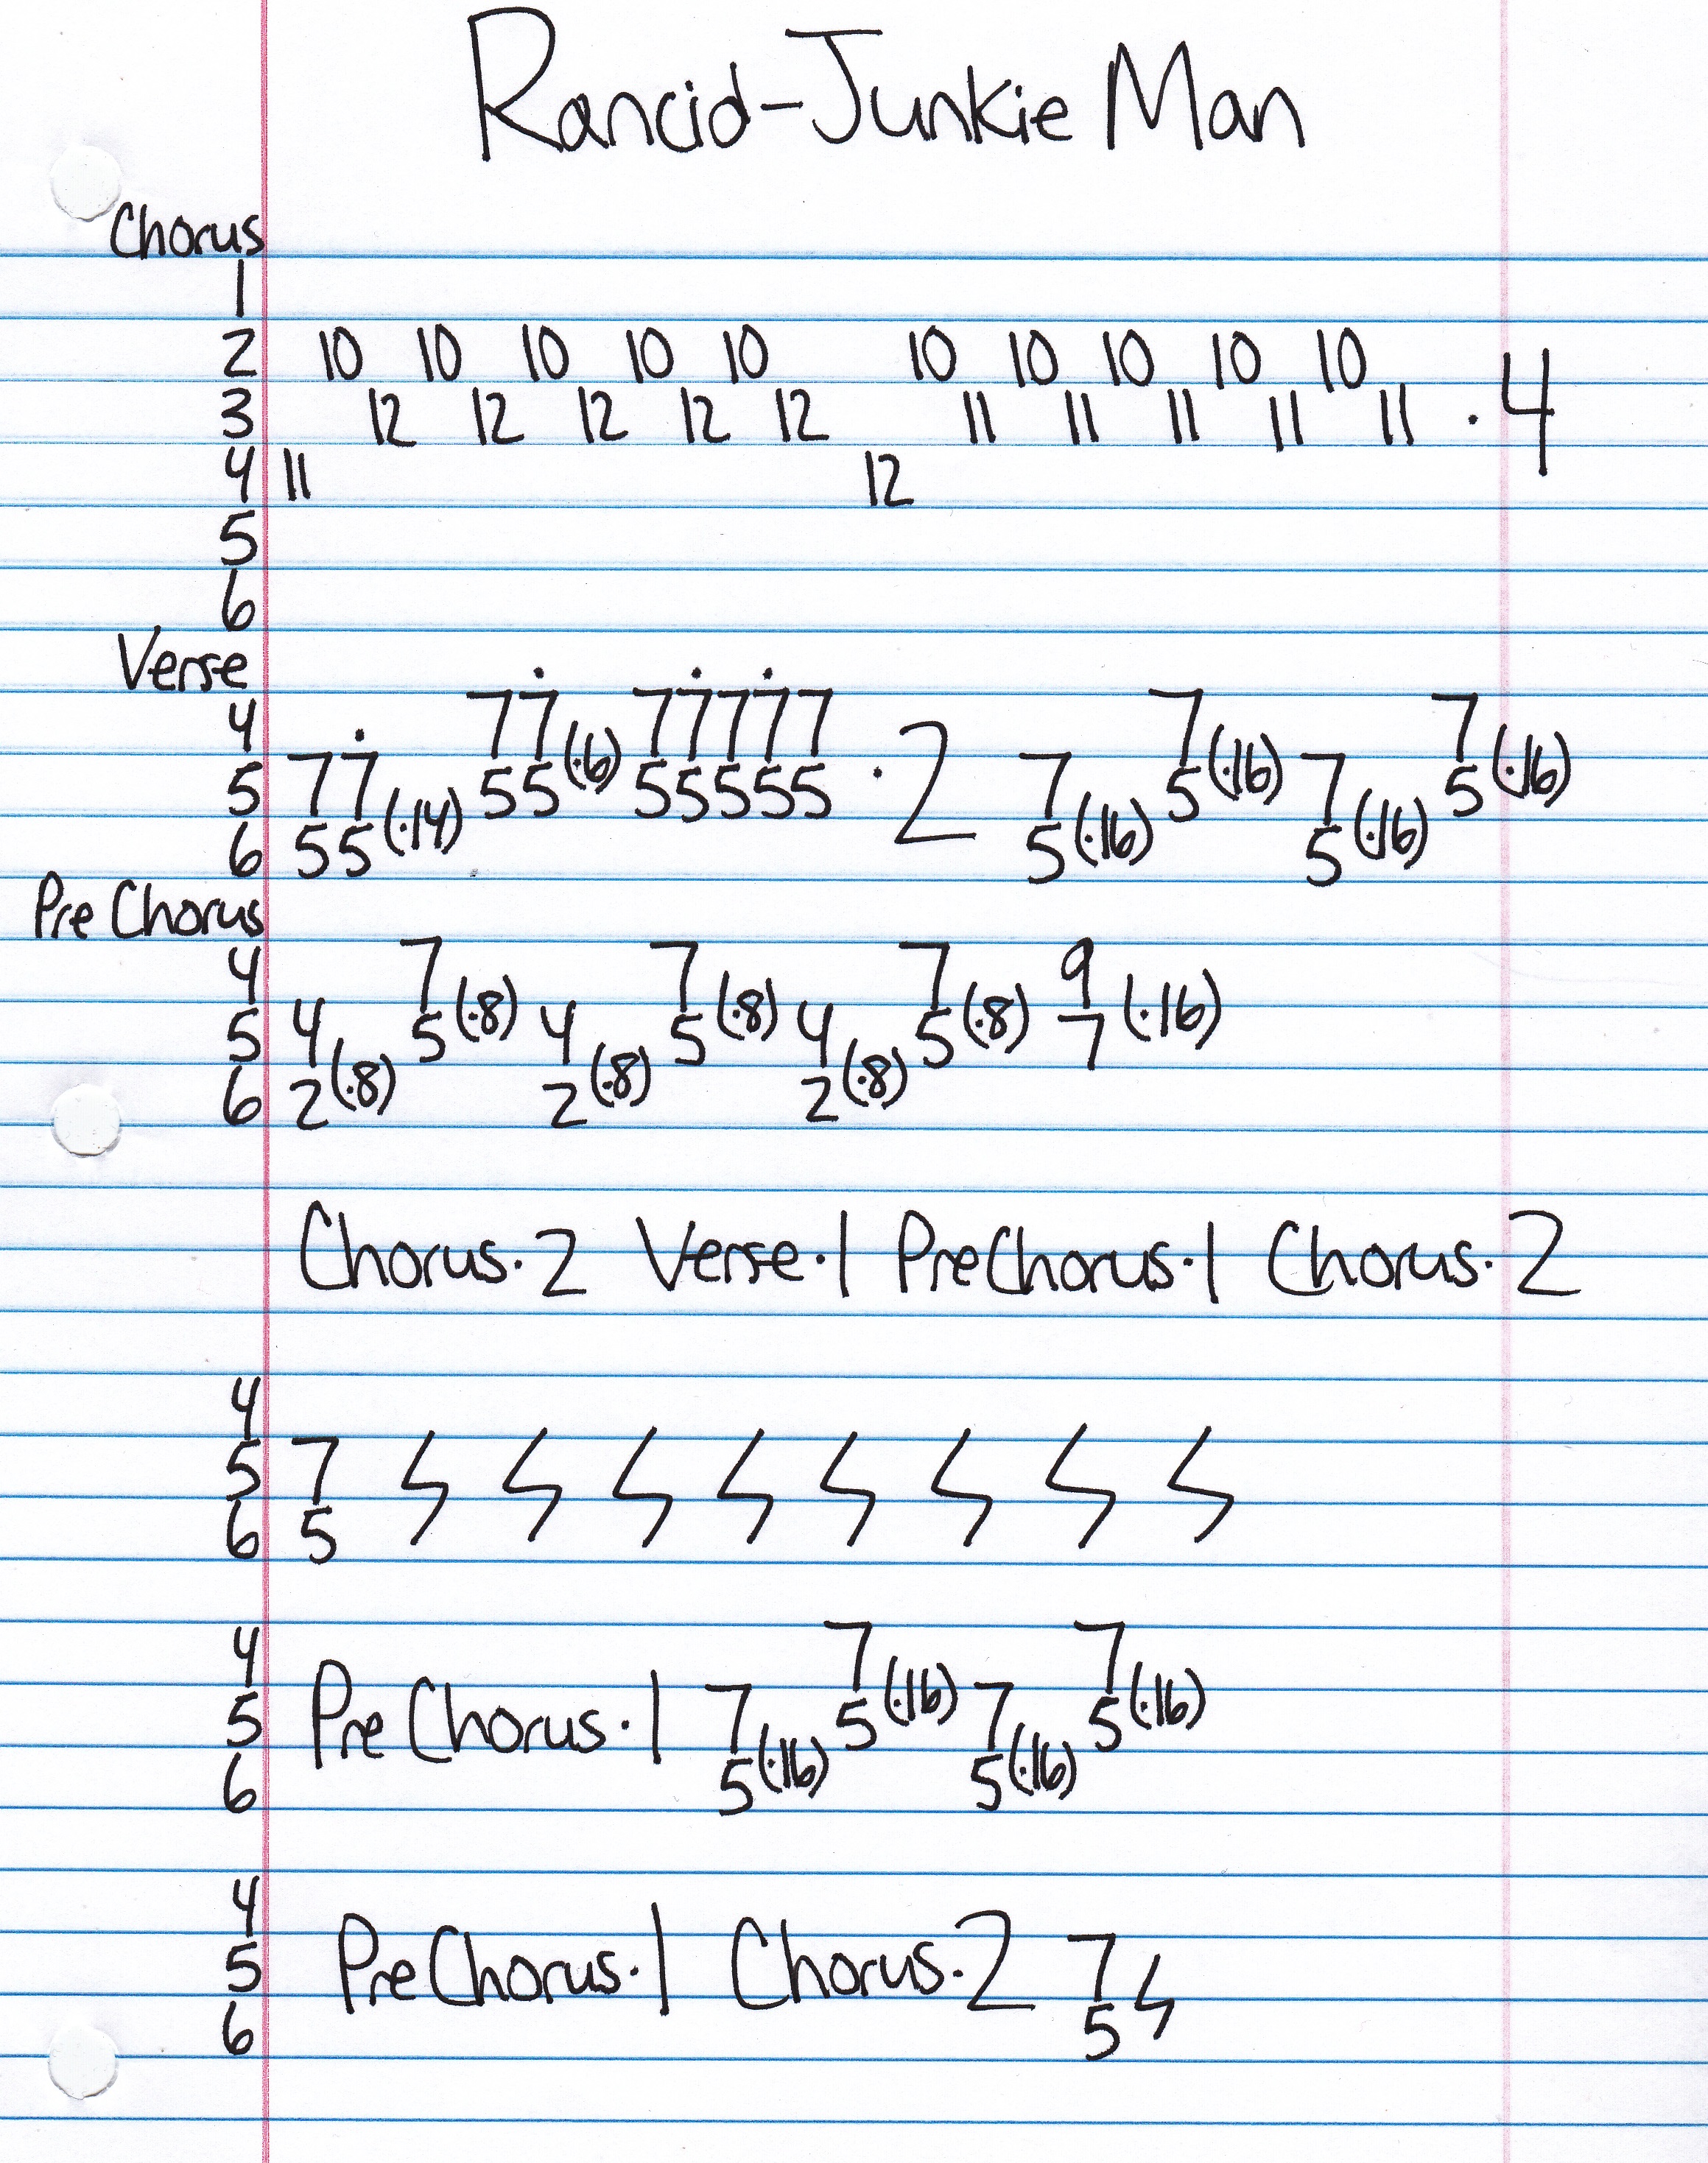 Rancid-Junkie Man
Chorus
1
2 10 10 10 10 10 10 10 10 10 10
3 12 12 12 12 12 11 11 11 11 11 · 4
4 11 12
5
6
Verse
4 7 7̇ 7 7̇ 7 7̇ 7 7 7
5 7 7̇ 5 5 (·6) 5 5 5 5 5 · 2 7 5 (·16) 7 5 (·16)
6 5 5 (·14) 5 (·16) 5 (·16)
Pre Chorus
4 7 7 7 9
5 4 5 (·8) 4 5 (·8) 4 5 (·8) 7 (·16)
6 2 (·8) 2 (·8) 2 (·8)
Chorus · 2 Verse · 1 PreChorus · 1 Chorus · 2
4
5 7
6 5
4 7 7
5 Pre Chorus · 1 7 5 (·16) 7 5 (·16)
6 5 (·16) 5 (·16)
4
5 Pre Chorus · 1 Chorus · 2 7
6 5